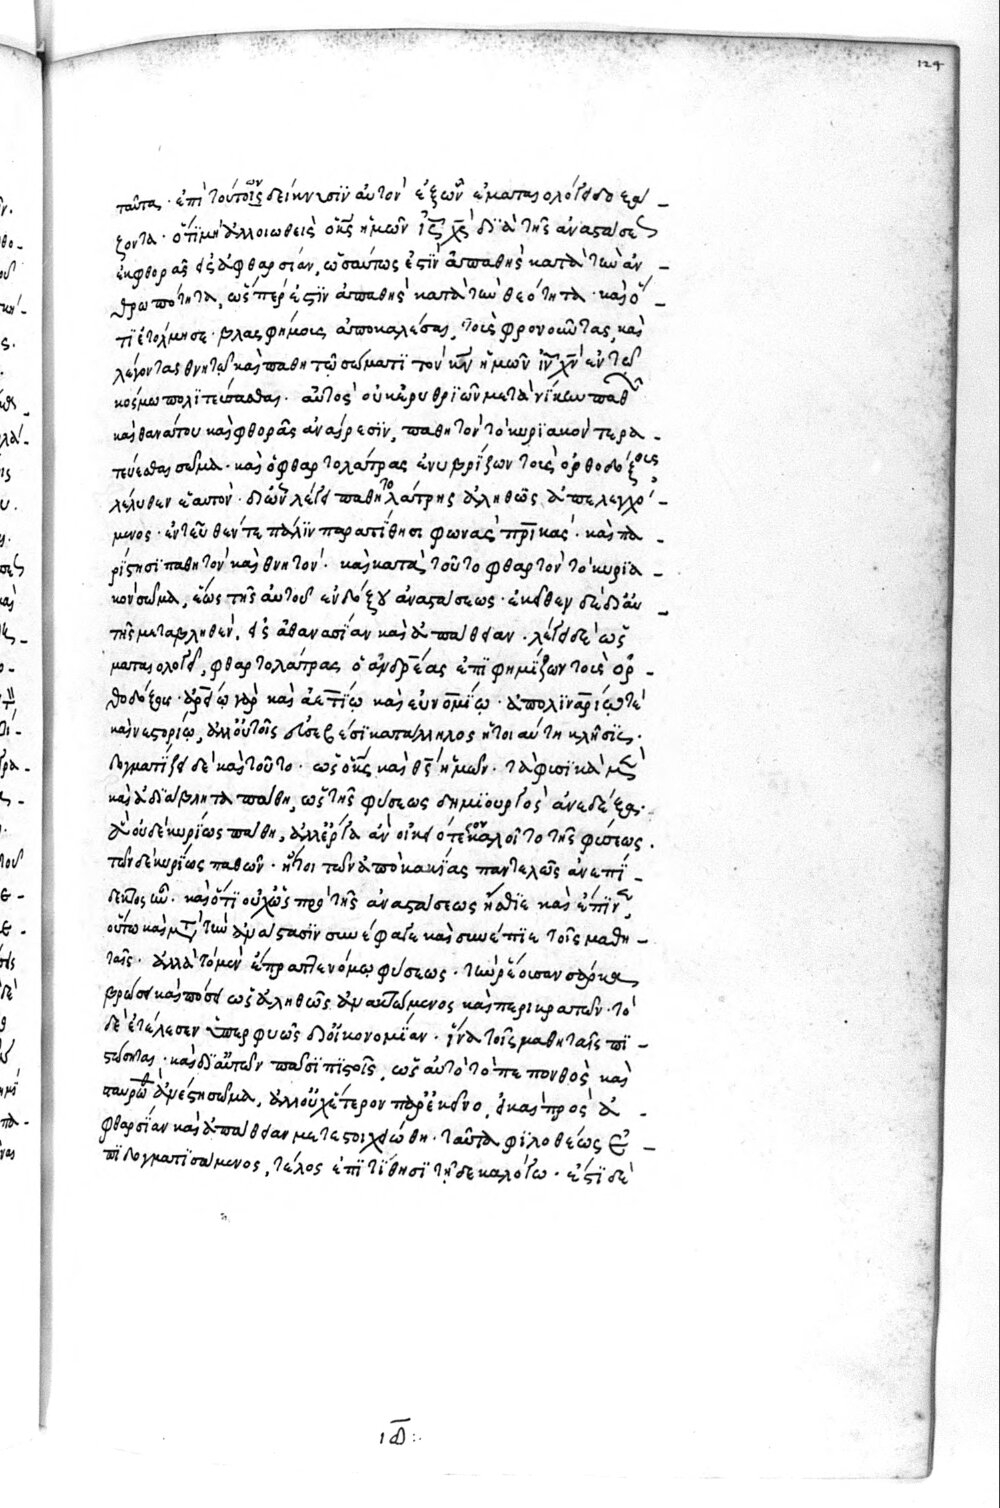 124
ταῦτα· ἐπὶ τούτοις δείκνυσιν αὐτὸν ἐξ ὧν ἐματαιολόγει διελέγ-
χοντα· ὅτι μὴ ἀλλοιωθεὶς ὁ κς ἡμῶν ις χς διὰ τῆς ἀναστάσεως
ἐκ φθορᾶς εἰς ἀφθαρσίαν, ὡσαύτως ἐστὶν ἀπαθὴς κατὰ τὴν ἀν-
θρωπότητα, ὥσπερ ἐστὶν ἀπαθὴς κατὰ τὴν θεότητα· καὶ ὅ-
τι ἐτόλμησε βλασφήμοις ἀποκαλέσαι, τοὺς φρονοῦντας, καὶ
λέγοντας θνητῷ καὶ παθητῷ σώματι τὸν κν ἡμῶν ιν χν ἐν τῷ
κόσμω πολιτεύσασθαι· αὐτὸς οὐκ ἐρυθριῶν μετὰ νίκην παθῶν
καὶ θανάτου καὶ φθορᾶς ἀναίρεσιν, παθητὸν τὸ κυριακὸν τερα-
τεύεσθαι σῶμα· καὶ ὁ φθαρτολάτρας ἐνυβρίζων τοὺς ὀρθοδόξους
λέληθεν ἑαυτὸν· δι ὧν λέγει παθητολάτρης ἀληθῶς ἀπελεγχό-
μενος· ἐντεῦθεν τε πάλιν παρατίθησι φωνὰς πρικὰς· καὶ πα-
ρίστησι παθητὸν καὶ θνητὸν· καὶ κατὰ τοῦτο φθαρτὸν τὸ κυρια-
κὸν σῶμα, ἕως τῆς αὐτοῦ ἐνδόξου ἀναστάσεως· ἐκεῖθεν δὲ δι αὐ-
τῆς μεταβληθὲν, εἰς ἀθανασίαν καὶ ἀπάθειαν· λέγει δὲ ὡς
ματαιολογεῖ, φθαρτολάτρας ὁ ἀνδρέας ἐπιφημίζων τοὺς ὀρ-
θοδόξους· ἀρείω γὰρ καὶ ἀετίω καὶ εὐνομίω· ἀπολιναρίω τὲ
καὶ νεστορίω, ἀλλ οὐ τοῖς εὐσεβέσι κατάλληλος ἤτοι αὐτη κλῆσις·
δογματίζει δὲ καὶ τοῦτο· ὡς ὁ κς καὶ θς ἡμῶν· τὰ φυσικὰ μὲν
καὶ ἀδιάβλητα πάθη, ὡς τῆς φύσεως δημιουργὸς ἀνεδέξατο·
ἃ οὐδὲ κυρίως πάθη, ἀλλ ἔργα ἂν οἰκειότερον καλοῖτο τῆς φύσεως·
τῶν δὲ κυρίως παθῶν· ἤτοι τῶν ἀπὸ κακίας παντελῶς ἀνεπί-
δεκτος ὢν· καὶ ὅτι οὐχ ὡς πρὸ τῆς ἀναστάσεως ἤσθιε καὶ ἔπινε,
οὕτω καὶ μετὰ τὴν ἀνάστασιν συνέφαγε καὶ συνέπιε τοῖς μαθη-
ταῖς· ἀλλὰ τὸ μὲν ἐπράττε νόμω φύσεως· τὴν ῥέουσαν σάρκα
βρώσει καὶ πόσει ὡς ἀληθῶς ἀνακτώμενος καὶ περικρατῶν· τὸ
δὲ ἐτέλεσεν ὑπερφυῶς δι οἰκονομίαν· ἵνα τοῖς μαθηταῖς πι-
στώσηται· καὶ δι αὐτῶν πᾶσι πιστοῖς, ὡς αὐτὸ τὸ πεπονθὸς καὶ
σταυρωθὲν ἀνέστη σῶμα, ἀλλ οὐχ ἕτερον παρ ἐκεῖνο, εἰ καὶ πρὸς ἀ-
φθαρσίαν καὶ ἀπάθειαν μετεστοιχειώθη· ταῦτα φιλοθέως ἐ-
πιδογματισάμενος, τέλος ἐπιτίθησι τῷδε λόγω· ἐστι δὲ
ιδ: